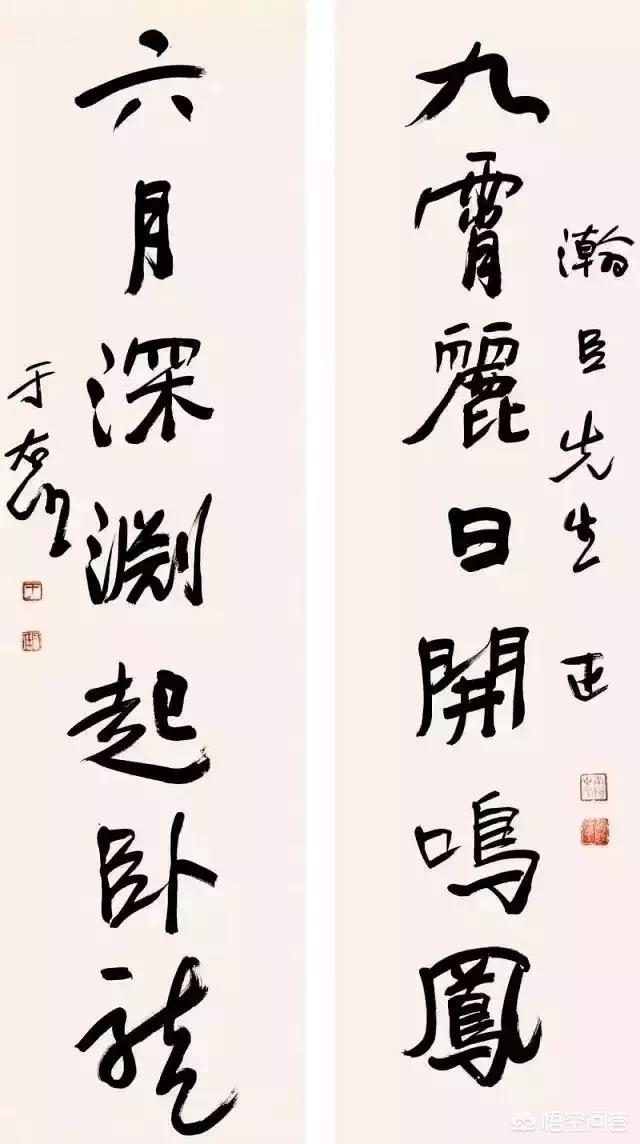 瀚臣先生正
九霄麗日開鳴鳳
六月深淵起卧龍
于右任
悟空问答